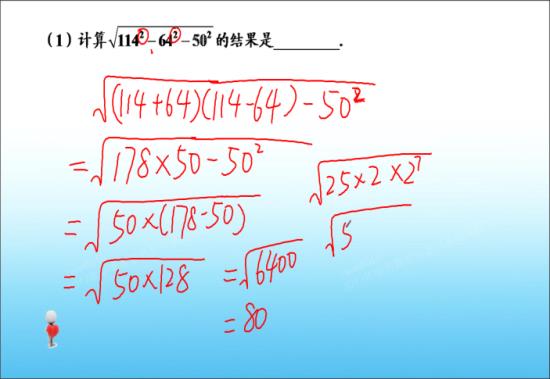 (1) 计算√(114²-64²-50²) 的结果是________.
√((114+64)(114-64)-50²)
=√(178×50-50²)
=√(50×(178-50))
=√(50×128)
√(25×2×2⁷)
√5
=√6400
=80